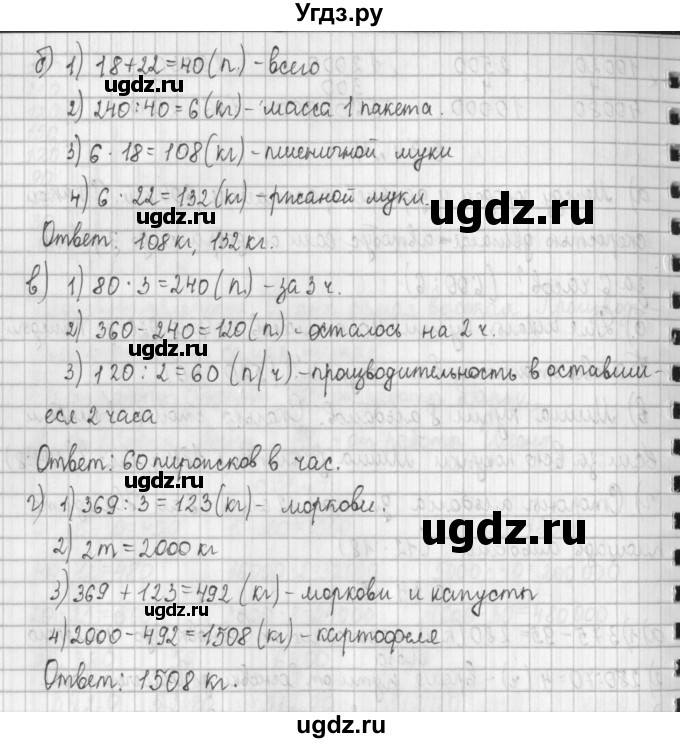 Угдз.ру
б) 1) 18+22=40(п.) - всего
2) 240:40=6(кг) - масса 1 пакета.
3) 6 · 18 = 108(кг) - пшеничной муки
4) 6 · 22 = 132(кг) - рисаной муки.
Ответ: 108 кг, 132 кг.
в) 1) 80 · 3 = 240(п.) - за 3 ч.
2) 360-240=120(п.) - осталось на 2 ч.
3) 120 : 2 = 60 (п/ч) - производительность в оставши-
еся 2 часа
Ответ: 60 пирожков в час.
г) 1) 369 : 3 = 123(кг) - моркови.
2) 2т = 2000 кг
3) 369 + 123 = 492 (кг) - моркови и капусты
4) 2000 - 492 = 1508(кг) - картофеля
Ответ: 1508 кг.
ugdz.ru
ugdz.ru
ugdz.ru
ugdz.ru
ugdz.ru
ugdz.ru
ugdz.ru
ugdz.ru